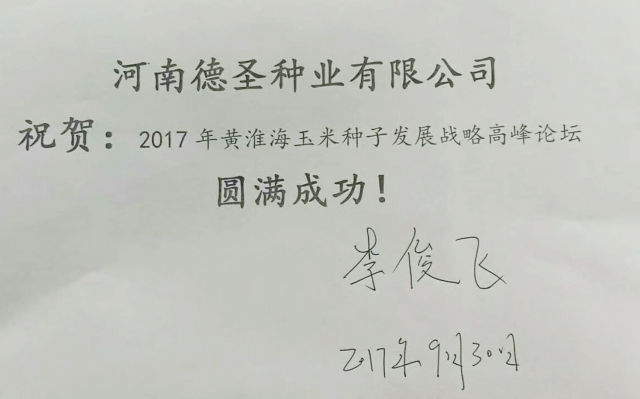 河南德圣种业有限公司
祝贺：2017年黄淮海玉米种子发展战略高峰论坛
圆满成功！
李俊飞
2017年9月30日